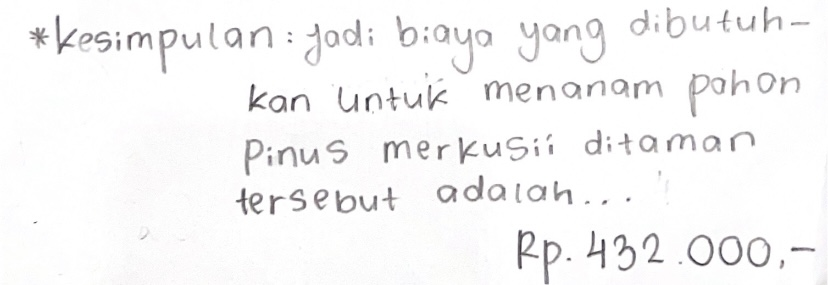 *kesimpulan : jadi biaya yang dibutuh-
kan untuk menanam pohon
Pinus merkusii ditaman
tersebut adalah...
Rp. 432.000,-